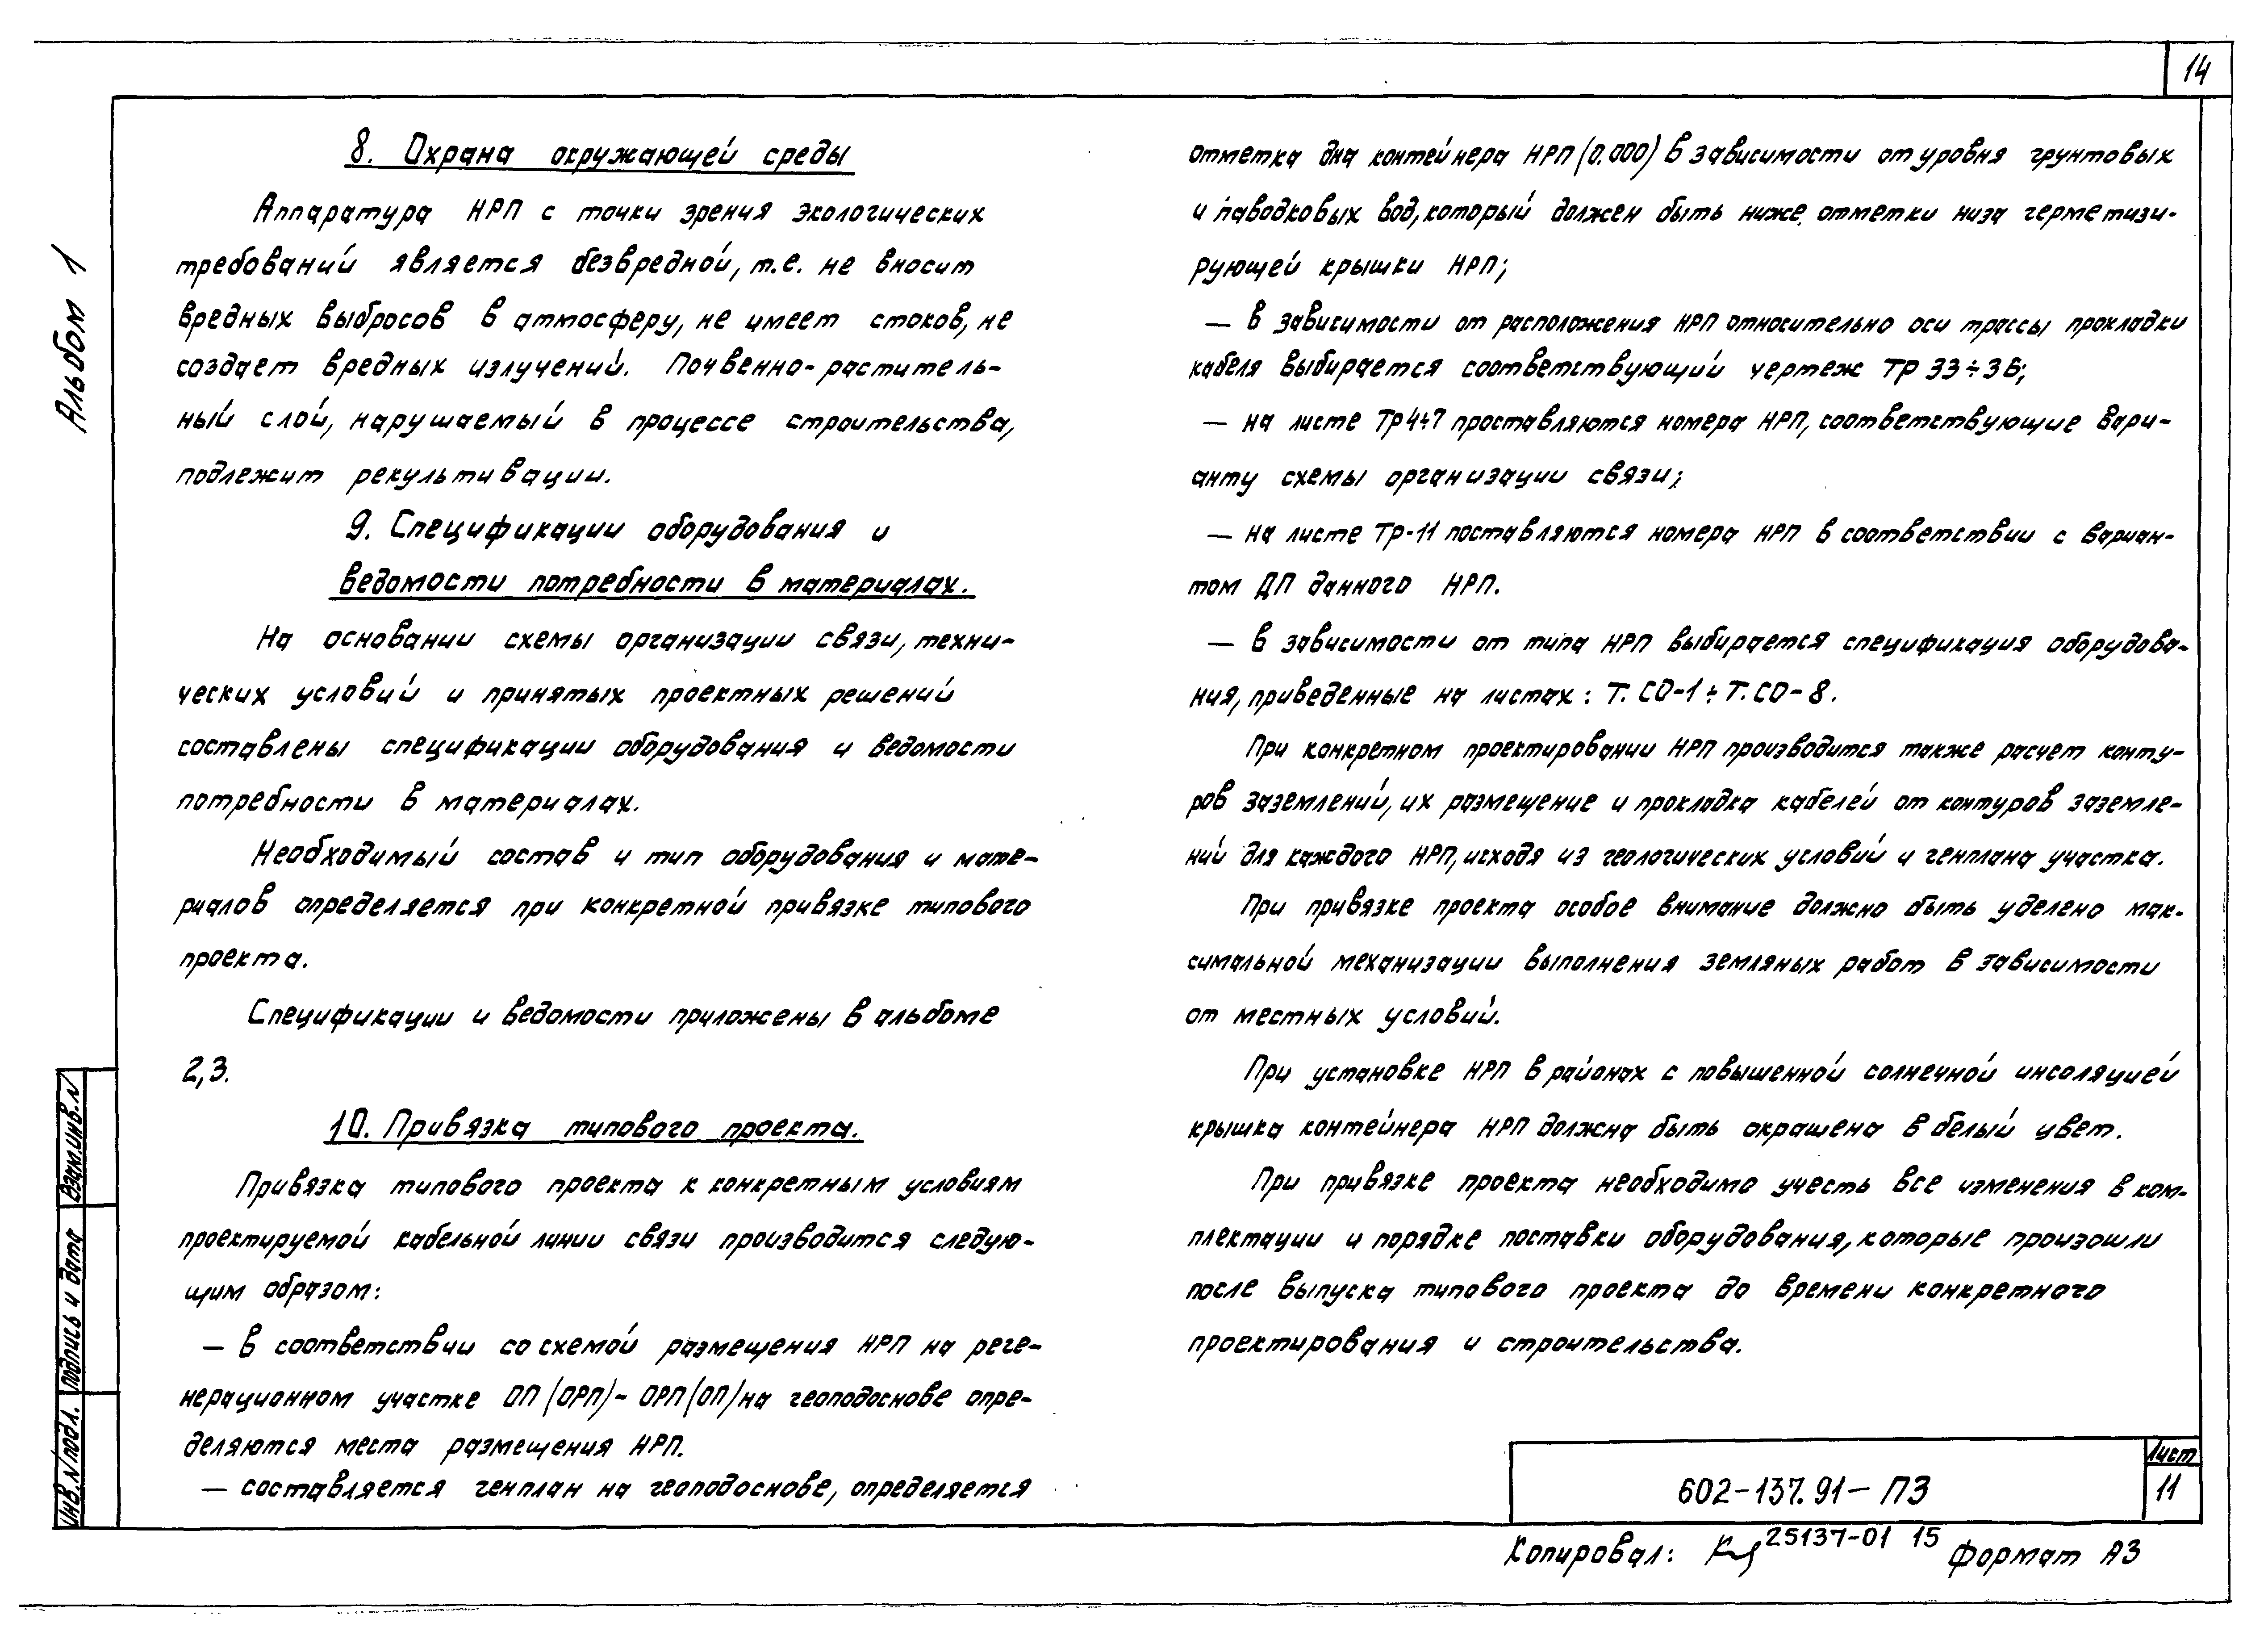 14
Альбом 1
8. Охрана окружающей среды
Аппаратура НРП с точки зрения экологических
требований является безвредной, т.е. не вносит
вредных выбросов в атмосферу, не имеет стоков, не
создает вредных излучений. Почвенно-раститель-
ный слой, нарушаемый в процессе строительства,
подлежит рекультивации.
9. Спецификации оборудования и
ведомости потребности в материалах.
На основании схемы организации связи, техни-
ческих условий и принятых проектных решений
составлены спецификации оборудования и ведомости
потребности в материалах.
Необходимый состав и тип оборудования и мате-
риалов определяется при конкретной привязке типового
проекта.
Спецификации и ведомости приложены в альбоме
2,3.
10. Привязка типового проекта.
Привязка типового проекта к конкретным условиям
проектируемой кабельной линии связи производится следую-
щим образом:
— в соответствии со схемой размещения НРП на реге-
нерационном участке ОП (ОРП)- ОРП(ОП) на геоподоснове опре-
деляются места размещения НРП.
— составляется генплан на геоподоснове, определяется
отметка дна контейнера НРП (0.000) в зависимости от уровня грунтовых
и паводковых вод, который должен быть ниже отметки низа герметизи-
рующей крышки НРП;
— в зависимости от расположения НРП относительно оси трассы прокладки
кабеля выбирается соответствующий чертеж ТР 33÷36;
— на листе ТР4÷7 проставляются номера НРП, соответствующие вари-
анту схемы организации связи;
— на листе ТР-11 поставляются номера НРП в соответствии с вариан-
том ДП данного НРП.
— в зависимости от типа НРП выбирается спецификация оборудова-
ния, приведенные на листах: Т.СО-1÷Т.СО-8.
При конкретном проектировании НРП производится также расчет конту-
ров заземлений, их размещение и прокладка кабелей от контуров заземле-
ний для каждого НРП, исходя из геологических условий и генплана участка.
При привязке проекта особое внимание должно быть уделено мак-
симальной механизации выполнения земляных работ в зависимости
от местных условий.
При установке НРП в районах с повышенной солнечной инсоляцией
крышка контейнера НРП должна быть окрашена в белый цвет.
При привязке проекта необходимо учесть все изменения в ком-
плектации и порядке поставки оборудования, которые произошли
после выпуска типового проекта до времени конкретного
проектирования и строительства.
Взам.инв.N
Подпись и дата
Инв.N подл.
602-137.91-ПЗ
Лист
11
Копировал: 25137-01 15 Формат А3